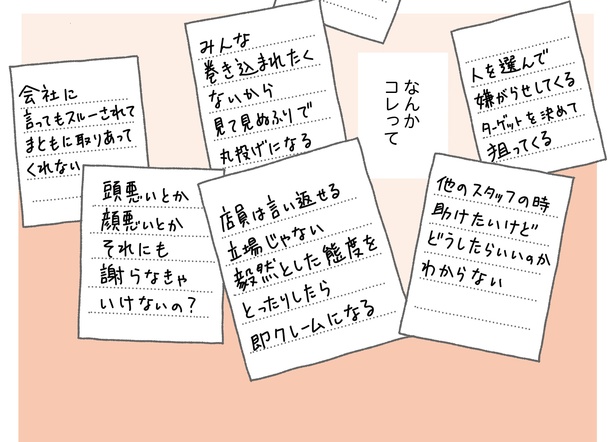 会社に
言ってもスルーされて
まともに取りあって
くれない
みんな
巻き込まれたく
ないから
見て見ぬふりで
丸投げになる
なんか
コレって
人を選んで
嫌がらせしてくる
ターゲットを決めて
狙ってくる
頭悪いとか
顔悪いとか
それにも
謝らなきゃ
いけないの？
店員は言い返せる
立場じゃない
毅然とした態度を
とったりしたら
即クレームになる
他のスタッフの時
助けたいけど
どうしたらいいのか
わからない